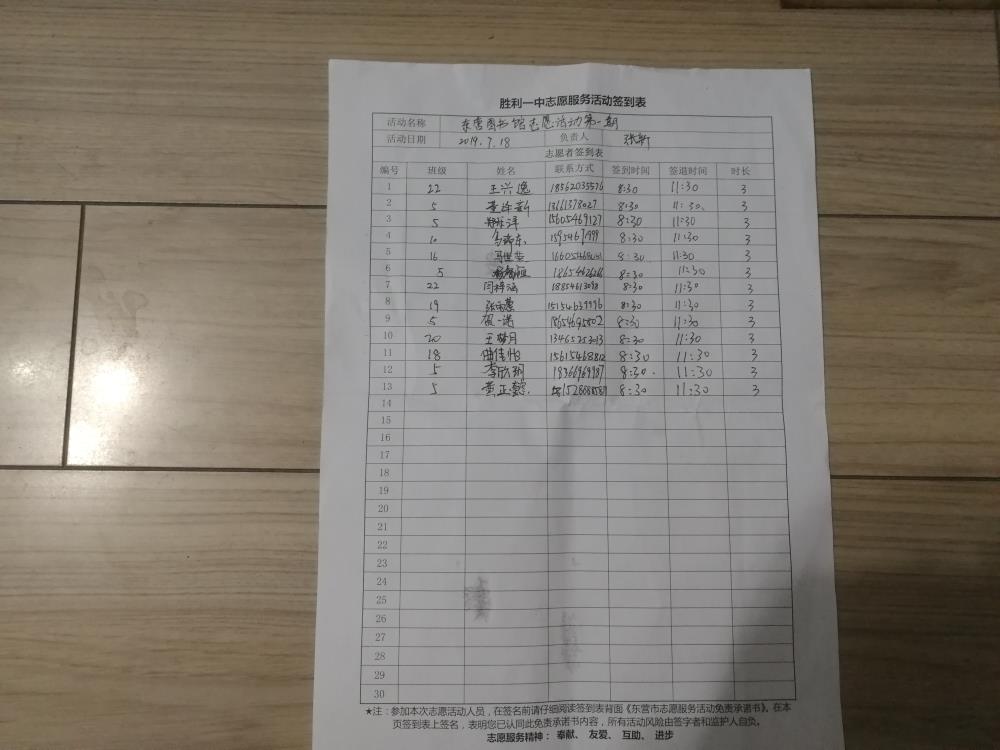 胜利一中志愿服务活动签到表
活动名称 东营图书馆志愿活动第一期
活动日期 2019.7.18 负责人 张新
志愿者签到表
编号 班级 姓名 联系方式 签到时间 签退时间 时长
1 22 王兴逸 18562035576 8:30 11:30 3
2 5 13661378027 8:30 11:30 3
3 5 15605469127 8:30 11:30 3
4 10 8:30 11:30 3
5 16 8:30 11:30 3
6 5 8:30 11:30 3
7 22 闫梓涵 18854613098 8:30 11:30 3
8 19 8:30 11:30 3
9 5 8:30 11:30 3
10 20 王梦月 8:30 11:30 3
11 18 曲佳怡 15615468812 8:30 11:30 3
12 5 李欣玥 18366969987 8:30 11:30 3
13 5 黄正懿 8:30 11:30 3
14
15
16
17
18
19
20
21
22
23
24
25
26
27
28
29
30
★注：参加本次志愿活动人员，在签名前请仔细阅读签到表背面《东营市志愿服务活动免责承诺书》。在本
页签到表上签名，表明您已认同此免责承诺书内容，所有活动风险由签字者和监护人自负。
志愿服务精神： 奉献、 友爱、 互助、 进步